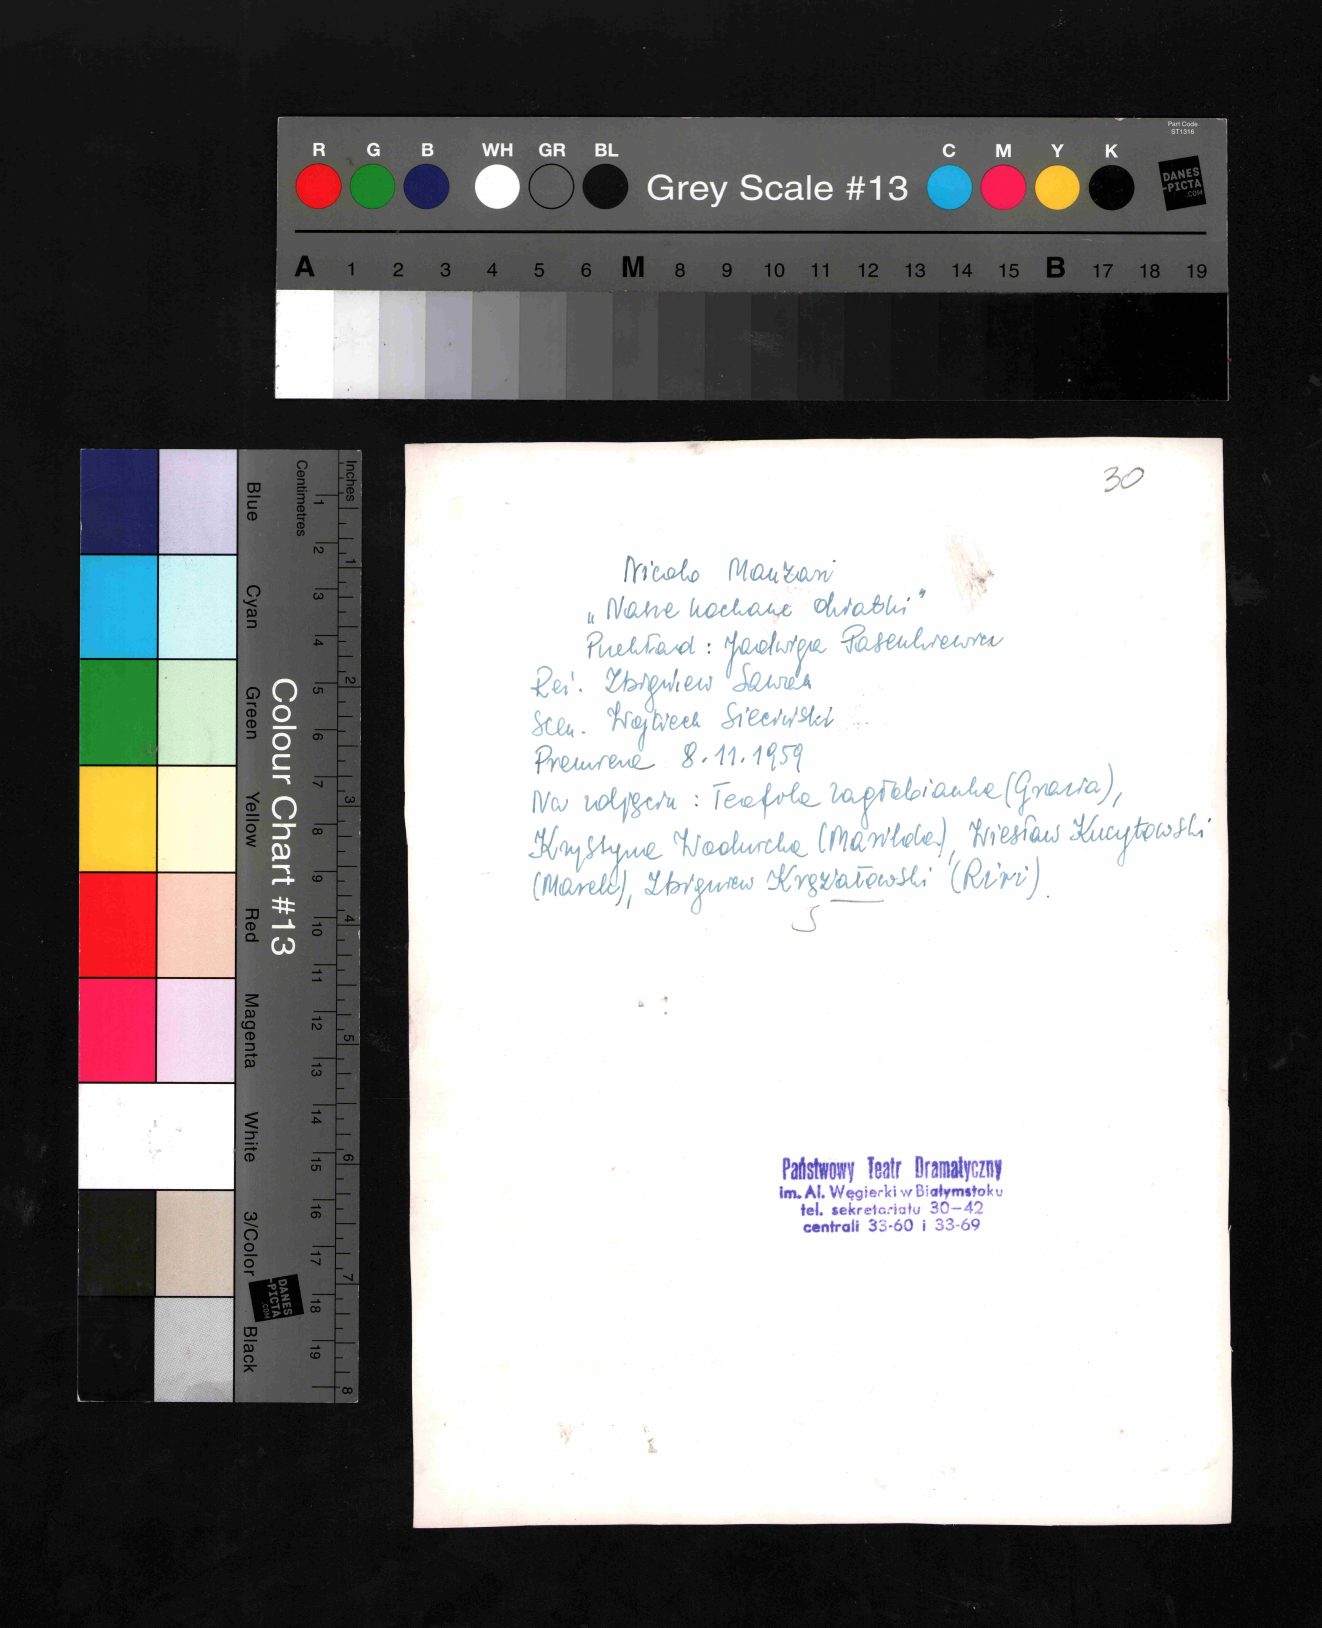 Part Code
ST1316
R G B WH GR BL Grey Scale #13 C M Y K
DANES
-PICTA
.COM
A 1 2 3 4 5 6 M 8 9 10 11 12 13 14 15 B 17 18 19
Colour Chart #13
Blue Cyan Green Yellow Red Magenta White 3/Color Black
Centimetres 1 2 3 4 5 6 7 8 9 10 11 12 13 14 15 16 17 18 19
Inches 1 2 3 4 5 6 7 8
DANES
-PICTA
.COM
30
Nicolo Manzari
„Nasze kochane dziatki"
Przekład: Jadwiga Pasenkiewicz
Reż. Zbigniew Sawan
Scen. Wojciech Sieciński
Premiera 8.11.1959
Na zdjęciu: Teofila Zagłobianka (Grazia),
Krystyna Wodnicka (Matylda), Wiesław Kucytowski
(Marek), Zbigniew Krzatowski (Riri).
S
Państwowy Teatr Dramatyczny
im. Al. Węgierki w Białymstoku
tel. sekretariatu 30-42
centrali 33-60 i 33-69